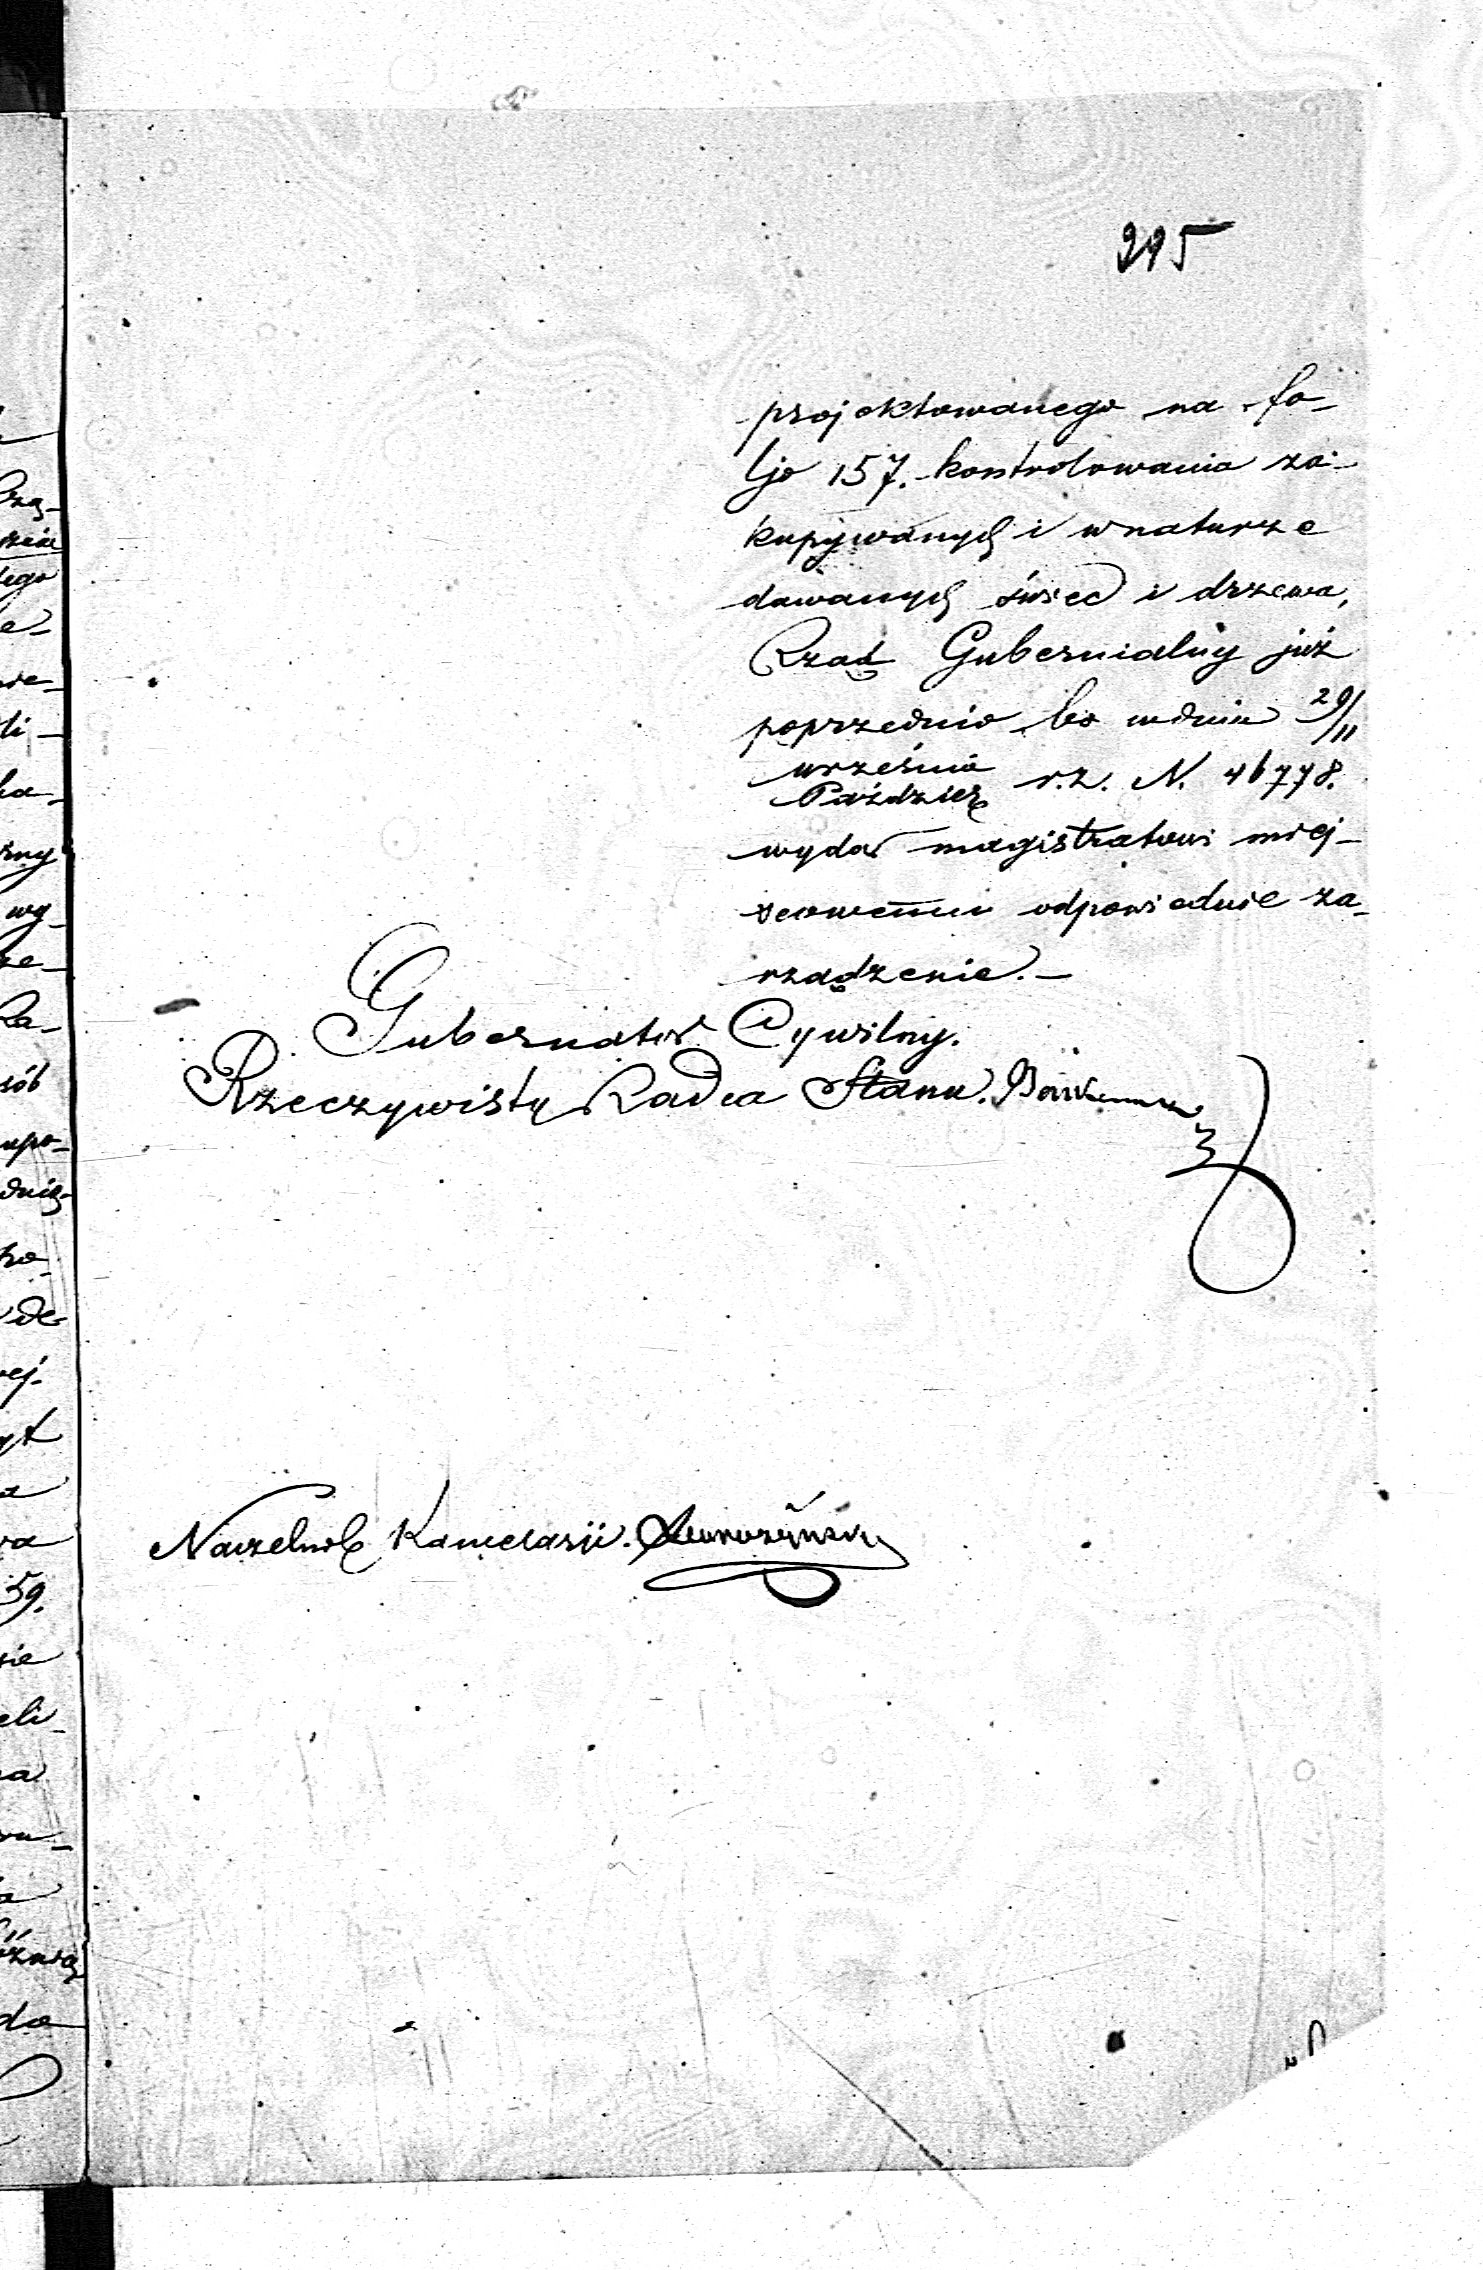 295
projektowanego na fo-
ljo 157. kontrolowania za-
kupywanych i w naturze
dawanych świec i drzewa,
Rząd Gubernialny już
poprzednio bo w dniu 29/11
września
Paździer r.z. N. 46778.
wydał magistratowi miej-
scowemu odpowiednie za-
rządzenie.-
Gubernator Cywilny.
Rzeczywisty Radca Stanu.
Naczelnik Kancelarji.